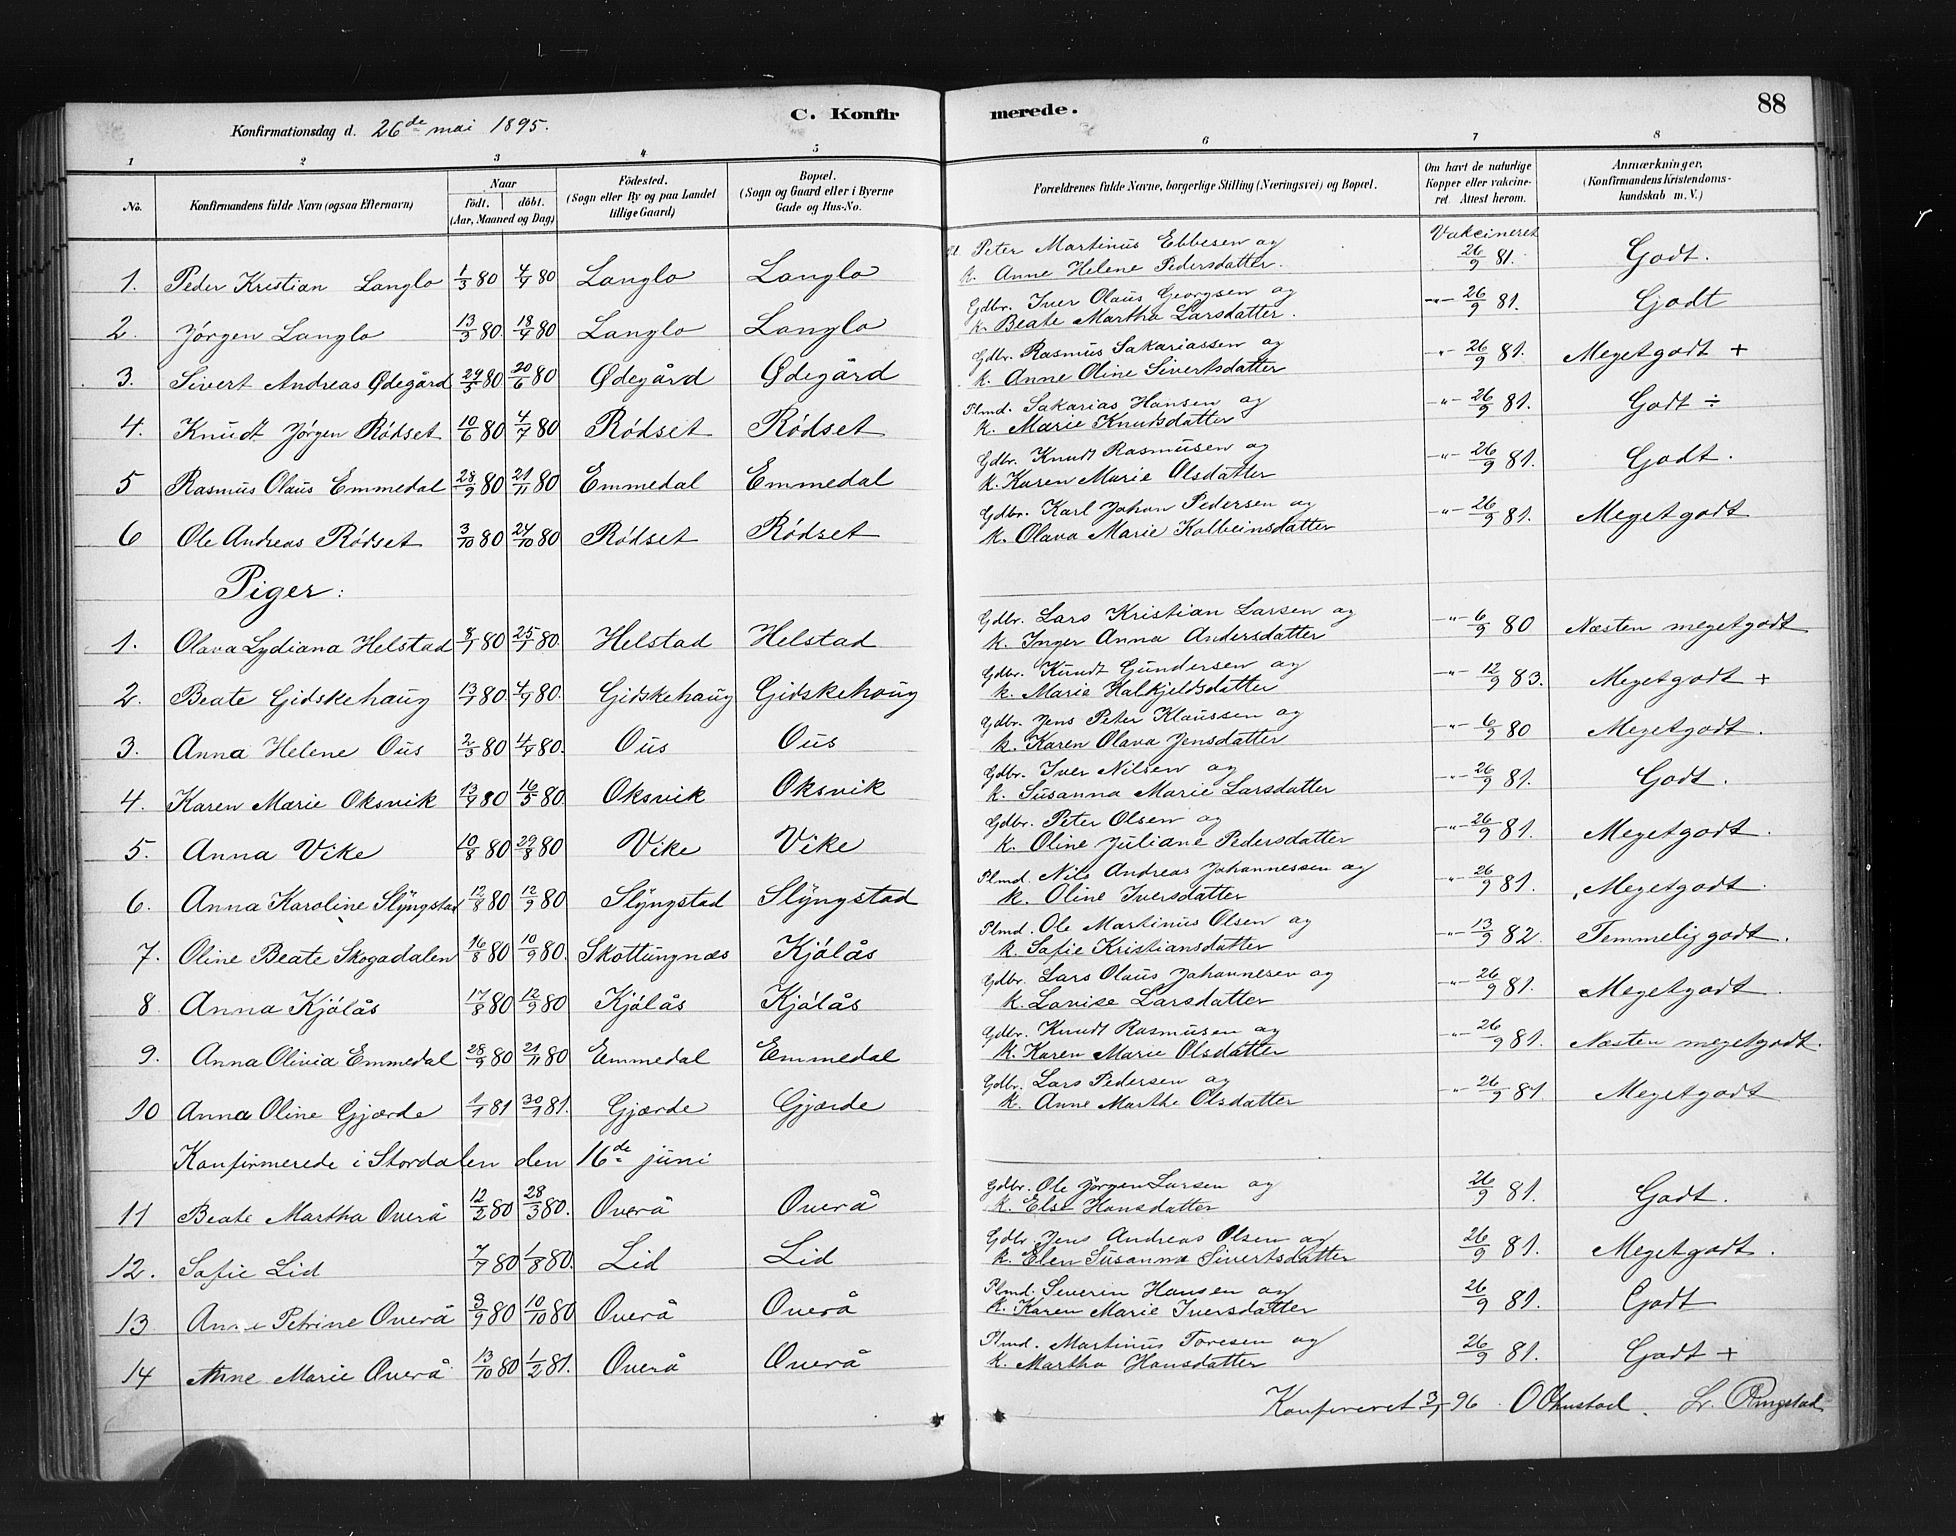 88
C. Konfirmerede.
Konfirmationsdag d. 26de mai 1895.
1 2 3 4 5 6 7 8
No. Konfirmandens fulde Navn (ogsaa Efternavn) Naar født. døbt. (Aar, Maaned og Dag) Fødested. (Sogn eller By og paa Landet tillige Gaard) Bopæl. (Sogn og Gaard eller i Byerne Gade og Hus-No. Forældrenes fulde Navne, borgerlige Stilling (Næringsvei) og Bopæl. Om havt de naturlige Kopper eller vakcineret. Attest herom. Anmærkninger, (Konfirmandens Kristendomskundskab m. V.)
1. Peder Kristian Langlo 1/3 80 4/4 80 Langlo Langlo Peter Martinus Ebbesen og k. Anne Helene Pedersdatter. Vakcineret 26/9 81. Godt.
2. Jørgen Langlo 13/3 80. 18/4 80 Langlo Langlo Gdbr. Iver Olaus Georgsen og k. Beate Martha Larsdatter. -"- 26/9 81. Godt
3. Sivert Andreas Ødegård 29/5 80 20/6 80 Ødegård Ødegård Gdbr. Rasmus Sakariassen og k. Anne Oline Sivertsdatter -"- 26/9 81. Megetgodt +
4. Knudt Jørgen Rødset 10/6 80 4/7 80 Rødset Rødset Plmd. Sakarias Hansen og k. Marie Knutsdatter -"- 26/9 81. Godt ÷
5 Rasmus Olaus Emmedal 28/9 80 21/11 80 Emmedal Emmedal Gdbr. Knudt Rasmusen og k. Karen Marie Olsdatter -"- 26/9 81. Godt.
6 Ole Andreas Rødset 3/10 80 24/10 80 Rødset Rødset Gdbr. Karl Johan Pedersen og k. Olava Marie Kolbeinsdatter -"- 26/9 81. Megetgodt
Piger:
1. Olava Lydiana Helstad 8/1 80 25/1 80. Helstad Helstad Gdbr. Lars Kristian Larsen og k. Inger Anna Andersdatter -"- 6/9 80 Næsten megetgodt
2. Beate Gidskehaug 13/1 80. 4/4 80. Gidskehaug Gidskehaug Gdbr. Knudt Gundersen og k. Marie Halkjeldsdatter -"- 12/9 83. Megetgodt +
3. Anna Helene Ous 2/3 80 4/4 80. Ous Ous Gdbr. Jens Peter Klaussen og k. Karen Olava Jensdatter -"- 6/9 80 Megetgodt.
4. Karen Marie Oksvik 13/4 80 16/5 80. Oksvik Oksvik Gdbr. Iver Nilsen og k. Susanna Marie Larsdatter -"- 26/9 81. Godt.
5. Anna Vike 10/8 80 29/8 80 Vike Vike Gdbr. Peter Olsen og k. Oline Juliane Pedersdatter -"- 26/9 81. Megetgodt.
6. Anna Karoline Slyngstad 12/8 80 12/9 80. Slyngstad Slyngstad Plmd. Nils Andreas Johannessen og k. Oline Iversdatter -"- 26/9 81. Megetgodt.
7. Oline Beate Skogadalen 16/8 80 10/9 80. Skottungnæs Kjølås Plmd. Ole Martinus Olsen og k. Sofie Kristiansdatter -"- 13/9 82. Temmelig godt.
8 Anna Kjølås 17/8 80 12/9 80 Kjølås Kjølås Gdbr. Lars Olaus Johannesen og k. Lovise Larsdatter -"- 26/9 81. Megetgodt.
9. Anna Olivia Emmedal 28/9 80 21/11 80 Emmedal Emmedal Gdbr. Knudt Rasmusen og k. Karen Marie Olsdatter -"- 26/9 81. Næsten megetgodt.
10 Anna Oline Gjærde 1/1 81 30/1 81. Gjærde Gjærde Gdbr. Lars Pedersen og k. Anne Marthe Olsdatter -"- 26/9 81. Megetgodt
Konfirmerede i Stordalen den 16de juni
11 Beate Martha Overå 12/2 80 28/3 80. Overå Overå Gdbr. Ole Jørgen Larsen og k. Else Hansdatter 26/9 81. Godt.
12. Sofie Lid 7/7 80 1/8 80. Lid Lid Gdbr. Jens Andreas Olsen og k. Elen Susanna Sivertsdatter 26/9 81. Megetgodt.
13 Anne Petrine Overå 9/9 80 10/10 80 Overå Overå Plmd. Severin Hansen og k. Karen Marie Iversdatter 26/9 81. Godt
14 Anne Marie Overå 13/10 80 1/2 81. Overå Overå Plmd. Martinus Toresen og k. Martha Hansdatter 26/9 81. Godt +
96 Ringstad